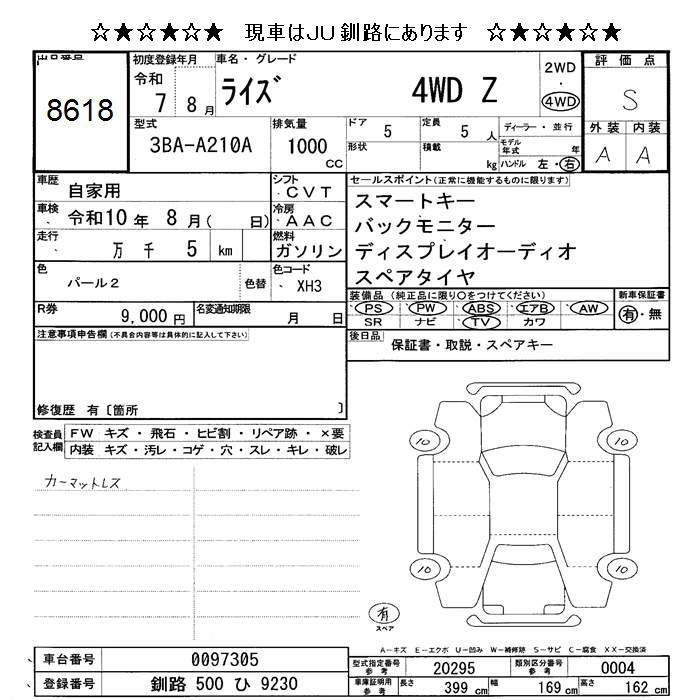 ☆★☆★☆★ 現車はJU釧路にあります ☆★☆★☆★
出品番号
8618
初度登録年月
令和
7 8月
車名・グレード
ライズ 4WD Z
2WD
・
4WD
評価点
S
外装 内装
A A
型式
3BA-A210A
排気量
1000
CC
ドア 5
定員 5 人
形状
積載 kg
ディーラー・並行
モデル年式 年
ハンドル 左・右
車歴 自家用
シフト
・CVT
車検 令和10年 8月( 日)
冷房
・AAC
走行 万 千 5 km
燃料
ガソリン
色 パール2 色替
色コード
・XH3
R券 9,000円
名変通知期限 月 日
セールスポイント(正常に機能するものに限ります)
スマートキー
バックモニター
ディスプレイオーディオ
スペアタイヤ
装備品(純正品に限り○をつけてください)
PS PW ABS エアB AW
SR ナビ TV カワ
新車保証書
有・無
後日品 保証書・取説・スペアキー
注意事項申告欄(不具合内容等は具体的に記入して下さい)
修復歴 有〔箇所 〕
検査員記入欄
FW キズ・飛石・ヒビ割・リペア跡・×要
内装 キズ・汚レ・コゲ・穴・スレ・キレ・破レ
カーマットレス
10 10
10 10
有
スペア
A-キズ E-エクボ U-凹み W-補修跡 S-サビ C-腐食 XX-交換済
車台番号 0097305
登録番号 釧路 500 ひ 9230
型式指定番号 参考 20295
類別区分番号 参考 0004
車庫証明用 参考 長さ 399 cm 幅 169 cm 高さ 162 cm